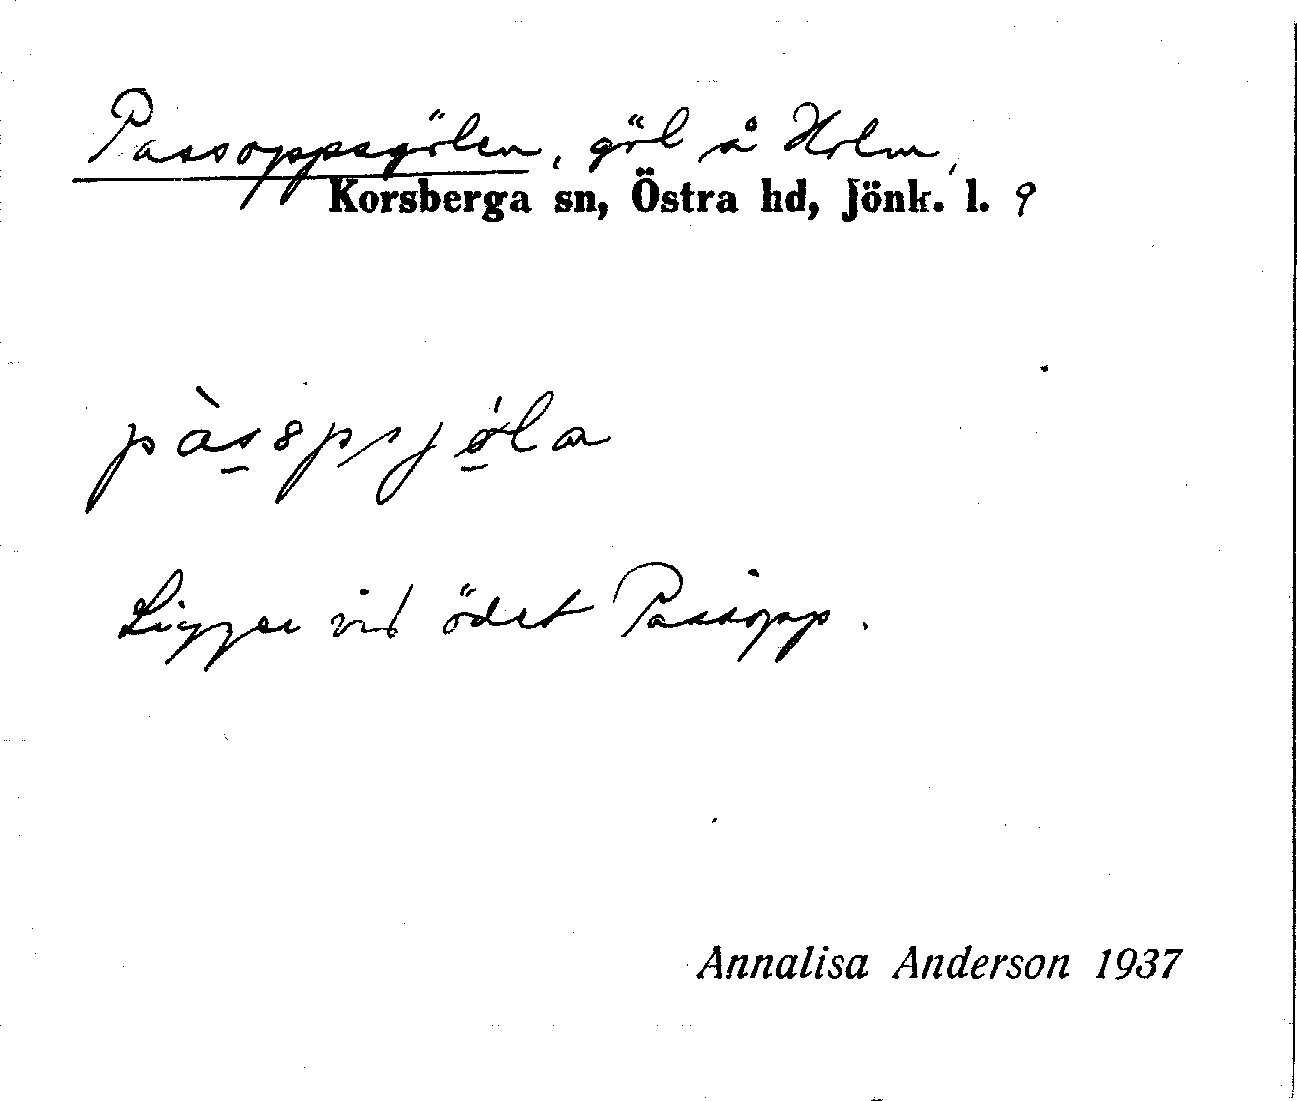 Passoppsgölen, göl å Holm,
Korsberga sn, Östra hd, Jönk. l. 9
pàs̲spsjǿ̲la
Ligger vid ödet Passopp.
Annalisa Anderson 1937